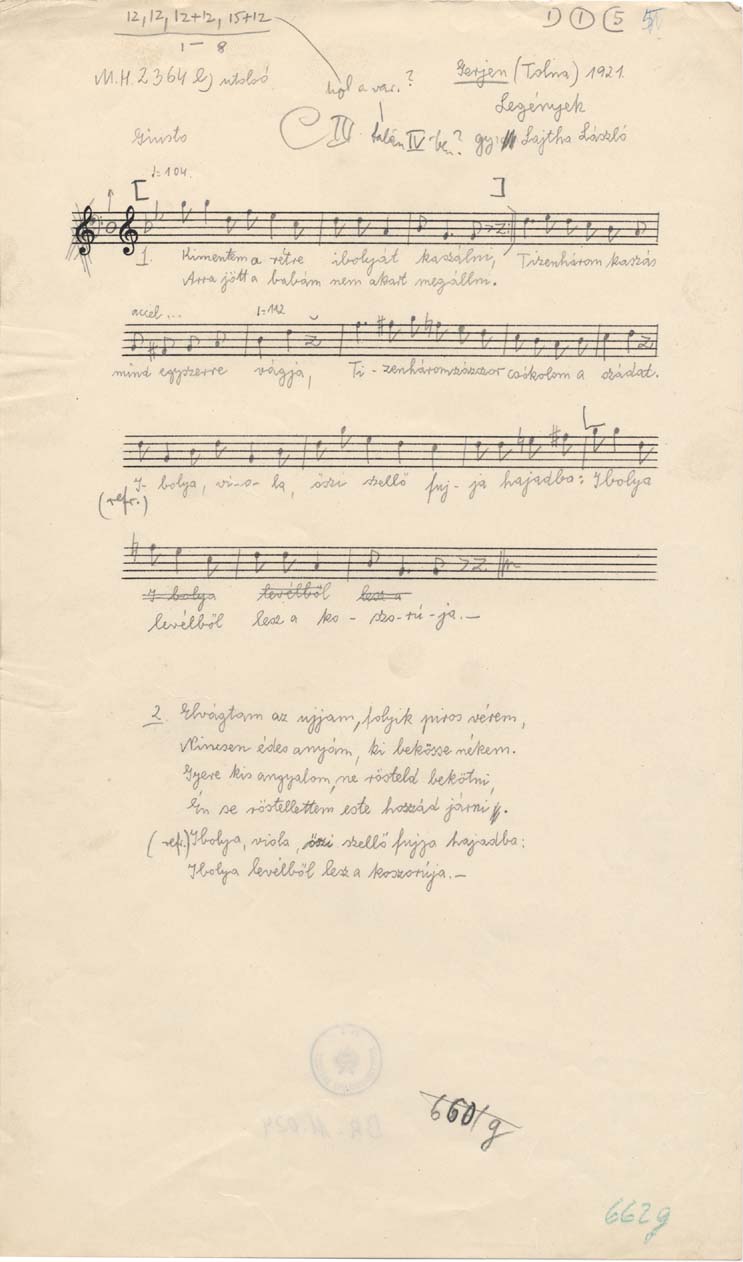 12, 12, 12+12, 15+12
1 – 8
1) ① 5
M.H. 2364 b) utolsó
hol a var.?
Gerjen (Tolna) 1921.
Legények
Giusto
C IV. talán IV-ben?
gy. Lajtha László
♩=104.
1. Kimentem a rétre ibolyát kaszálni, Tizenhárom kaszás
Arra jött a babám nem akart megállni.
accel...
♩=112
mind egyszerre vágja, Ti-zenháromszázszor csókolom a szádat.
I-bolya, vi-o-la, őszi szellő fuj-ja hajadba: Ibolya
(refr.)
I-bolya levélből lesz a
levélből lesz a ko-szo-rú-ja.–
2. Elvágtam az ujjam, folyik piros vérem,
Nincsen édes anyám, ki bekösse nékem.
Gyere kis angyalom, ne rösteld bekötni,
Én se röstellettem este hozzád járni.
(refr.) Ibolya, viola, őszi szellő fujja hajadba:
Ibolya levélből lesz a koszorúja.–
660/g
662g